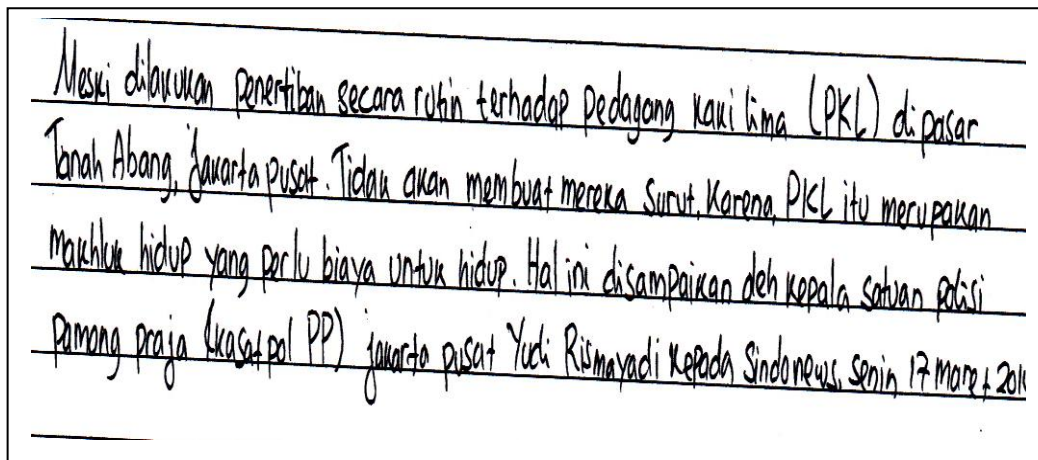 Meski dilakukan penertiban secara rutin terhadap pedagang kaki lima (PKL) di pasar
Tanah Abang, jakarta pusat. Tidak akan membuat mereka surut, Karena, PKL itu merupakan
makhluk hidup yang perlu biaya untuk hidup. Hal ini disampaikan oleh kepala satuan polisi
pamong praja (kasatpol PP) jakarta pusat Yudi Rismayadi kepada Sindonews, senin, 17 maret